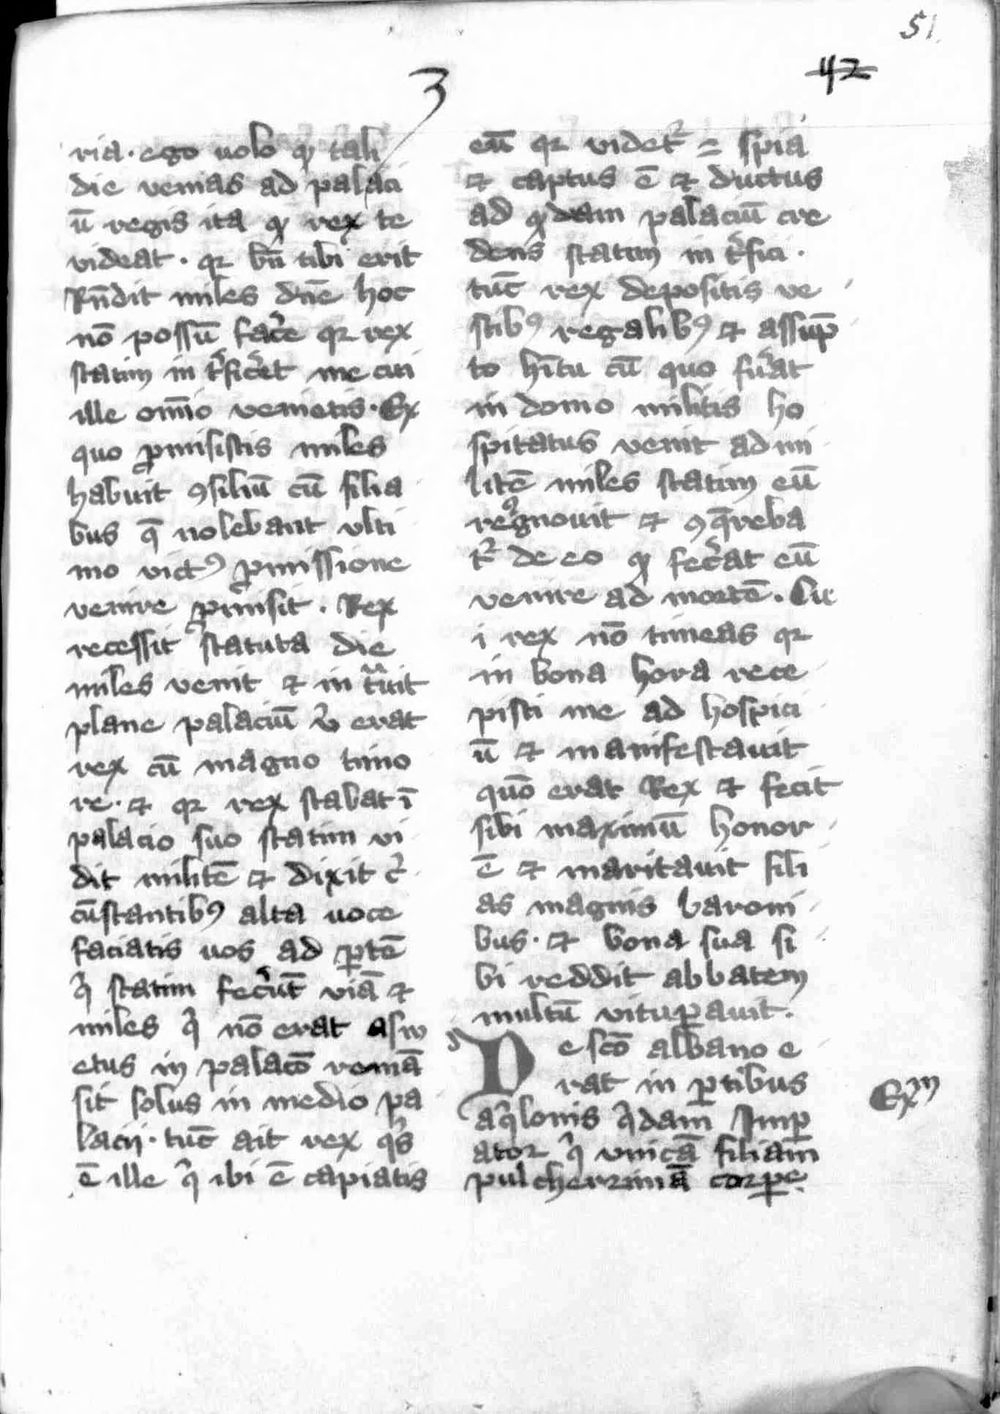 51.
42
3
ria · ego uolo qͥ tali
die venias ad palaci
ū regis ita qͥ rex te
videat · qr bn̄ tibi erit
Rn̄dit miles dn̄e hoc
nō possū fac̓e qr rex
statim in t̓fic̓et me cui
ille om̄io venietis · Ex
quo ꝓmisistis miles
habuit ꝯsiliū cū filia
bus q̄ nolebant vlti
mo victꝰ ꝓmissione
venire ꝓmisit · Rex
recessit statuta die
miles venit ⁊ in tᵃuit
plane palaciū v̓ erat
rex cū magno timo
re · ⁊ qr rex stabat ī
palacio suo statim vi
dit militē ⁊ dixit c̓
cūstantibꝰ alta uoce
faciatis uos ad ꝑtē
qͥ statim fec̓ūt viā ⁊
miles qͥ nō erat asw
etus in palacō remā
sit solus in medio pa
lacij · tūc ait rex qͥs
ē ille qͥ ibi ē capiatis
eū qr videt᷑ = spia
⁊ captus ē ⁊ ductus
ad qͦdam palaciū cre
dens statim in t̓fici ·
tūc rex depositis ve
stibꝰ regalibꝰ ⁊ assūp
to hītu cū quo fu̓at
in domo militis ho
spitatus venit ad mi
litē miles statim eū
reꝯgnouit ⁊ ꝯq̄reba
t᷑ de eo qͥ fec̓at eū
venire ad mortē · Cu
i rex nō timeas qr
in bona hora rece
pisti me ad hospici
ū ⁊ manifestauit
quō erat Rex ⁊ fecit
sibi maximū honor
ē ⁊ maritauit fili
as magnis baroni
bus · ⁊ bona sua si
bi reddit abbatem
multū vituꝑauit ·
De scō albano e
rat in ꝑtibus
aqͥlonis qͥdam Imꝑ
ator qͥ vnicā filiam
pulcherrimā corꝑe
Exᵐ